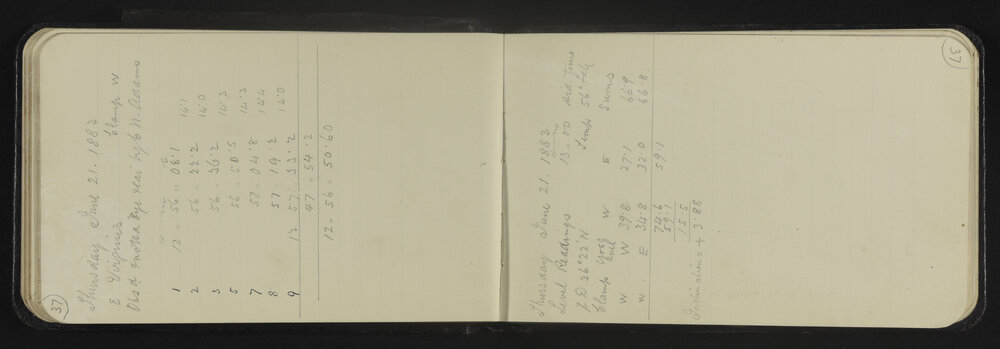 37
Thursday June 21. 1883
E Virginis Clamp W
Obsd & noted Eye & ear by C. H. Adams
h m s
1 12 „ 56 „ 08.1
14.1
2 56 „ 22.2
14.0
3 56 „ 36.2
14.3
5 56 „ 50.5
14.3
7 57 „ 04.8
14.4
8 57 „ 19.2
14.0
9 12 57 „ 33.2
47 „ 54.2
12 „ 56 „ 50.60
37
Thursday June 21. 1883
Level Readings 13 „ 00 Sid. Time
Z D 36°22' N Temp 56°
Clamp Level W E Sums
W W 39.8 27.1 66.9
W. E 34.8 32.0 66.8
74.6 59.1
59.1
15.5
Inclination = + 3.88